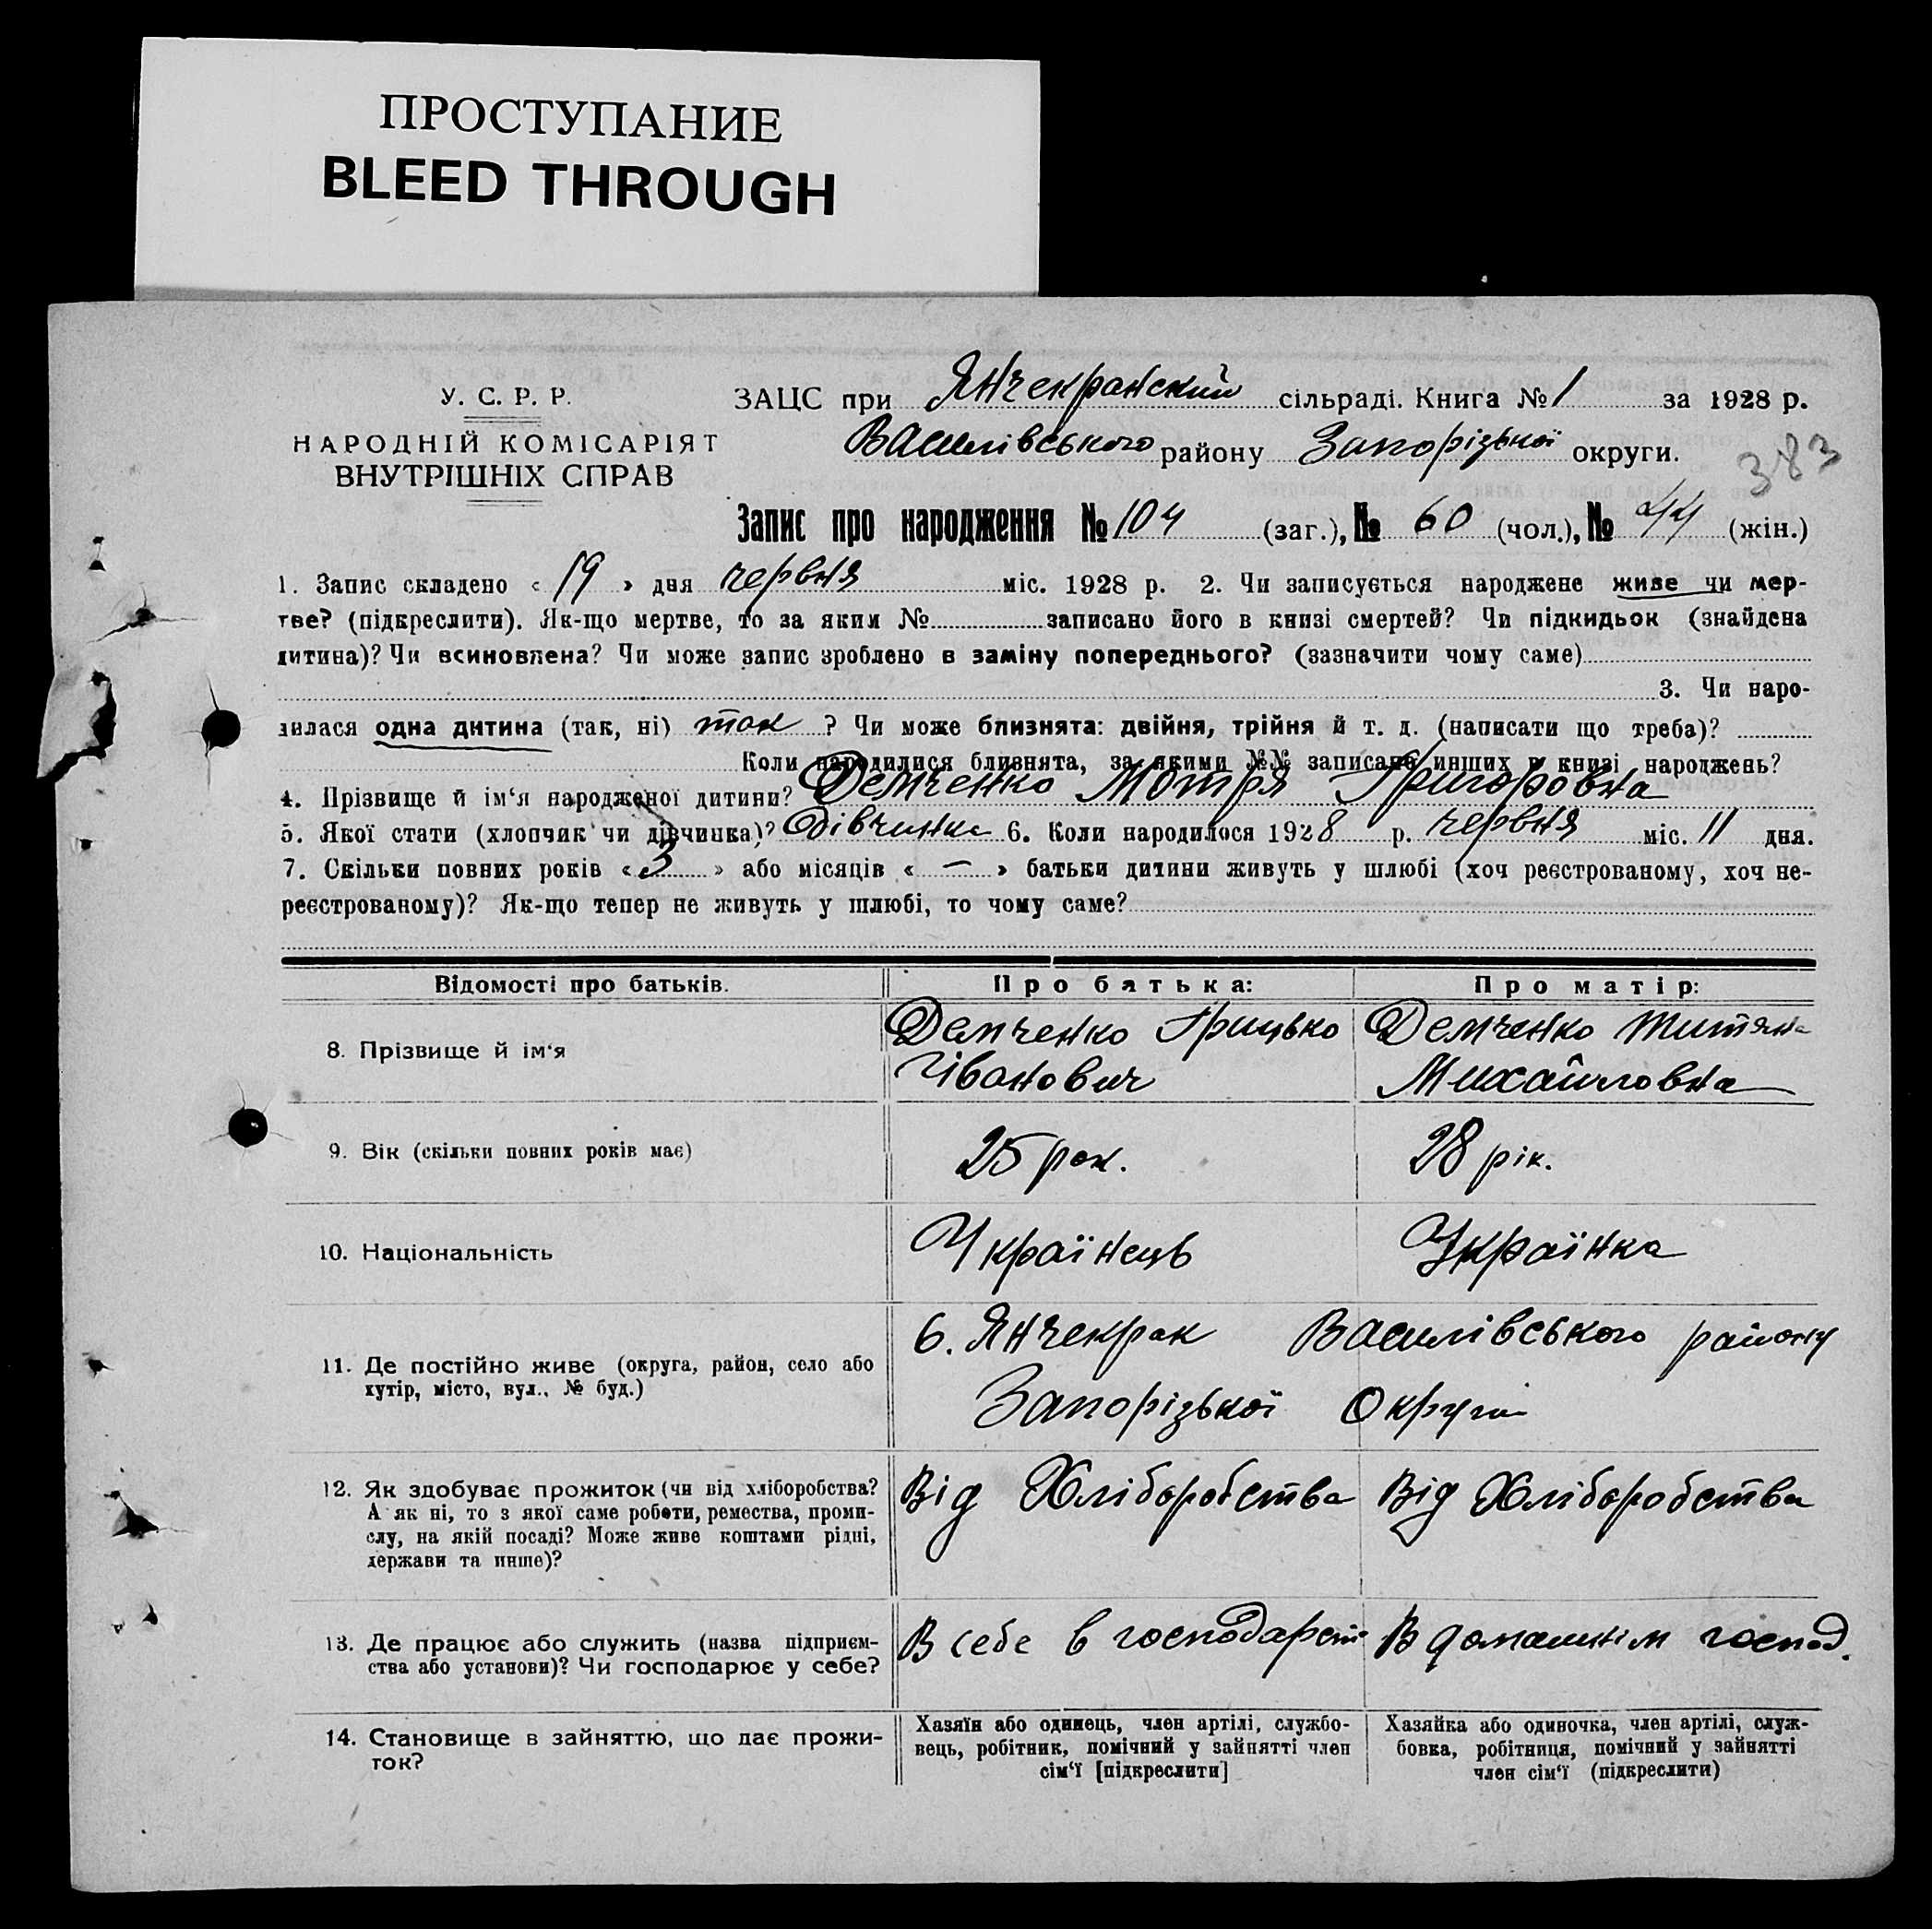 ПРОСТУПАНИЕ
BLEED THROUGH
У. С. Р. Р.
НАРОДНІЙ КОМІСАРІЯТ
ВНУТРІШНІХ СПРАВ
ЗАЦС при Янчекранский сільраді. Книга № 1 за 1928 р.
Василівського району Запорізької округи.
383
Запис про народження № 104 (заг.), № 60 (чол.), № 44 (жін.)
1. Запис складено « 19 » дня червня міс. 1928 р. 2. Чи записується народжене живе чи мер-
тве? (підкреслити). Як-що мертве, то за яким № записано його в книзі смертей? Чи підкидьок (знайдена
дитина)? Чи всиновлена? Чи може запис зроблено в заміну попереднього? (зазначити чому саме)
3. Чи наро-
дилася одна дитина (так, ні) так ? Чи може близнята: двійня, трійня й т. д. (написати що треба)?
Коли народилися близнята, за якими №№ записано инших в книзі народжень?
4. Прізвище й ім‘я народженої дитини? Демченко Мотря Григоровна
5. Якої стати (хлопчик чи дівчинка)? Дівчинка 6. Коли народилося 1928 р. червня міс. 11 дня.
7. Скільки повних років « 3 » або місяців « — » батьки дитини живуть у шлюбі (хоч реєстрованому, хоч не-
реєстрованому)? Як-що тепер не живуть у шлюбі, то чому саме?
Відомості про батьків. Про батька: Про матір:
8. Прізвище й ім‘я Демченко Грицько Демченко Титяна
Івонович Михайловна
9. Вік (скільки повних років має) 25 рок. 28 рік.
10. Національність Українець Українка
11. Де постійно живе (округа, район, село або
хутір, місто, вул., № буд.)
с. Янчекрак Василівського району
Запорізької Округи
12. Як здобуває прожиток (чи від хліборобства?
А як ні, то з якої саме роботи, ремества, проми-
слу, на якій посаді? Може живе коштами рідні,
держави та инше)?
Від Хліборобства Від Хліборобства
13. Де працює або служить (назва підприєм-
ства або установи)? Чи господарює у себе?
В себе в господарст В домашнім господ.
14. Становище в зайняттю, що дає прожи-
ток?
Хазяїн або одинець, член артілі, службо-
вець, робітник, помічний у зайнятті член
сім‘ї [підкреслити]
Хазяйка або одиночка, член артілі, служ-
бовка, робітниця, помічний у зайнятті
член сім‘ї (підкреслити)